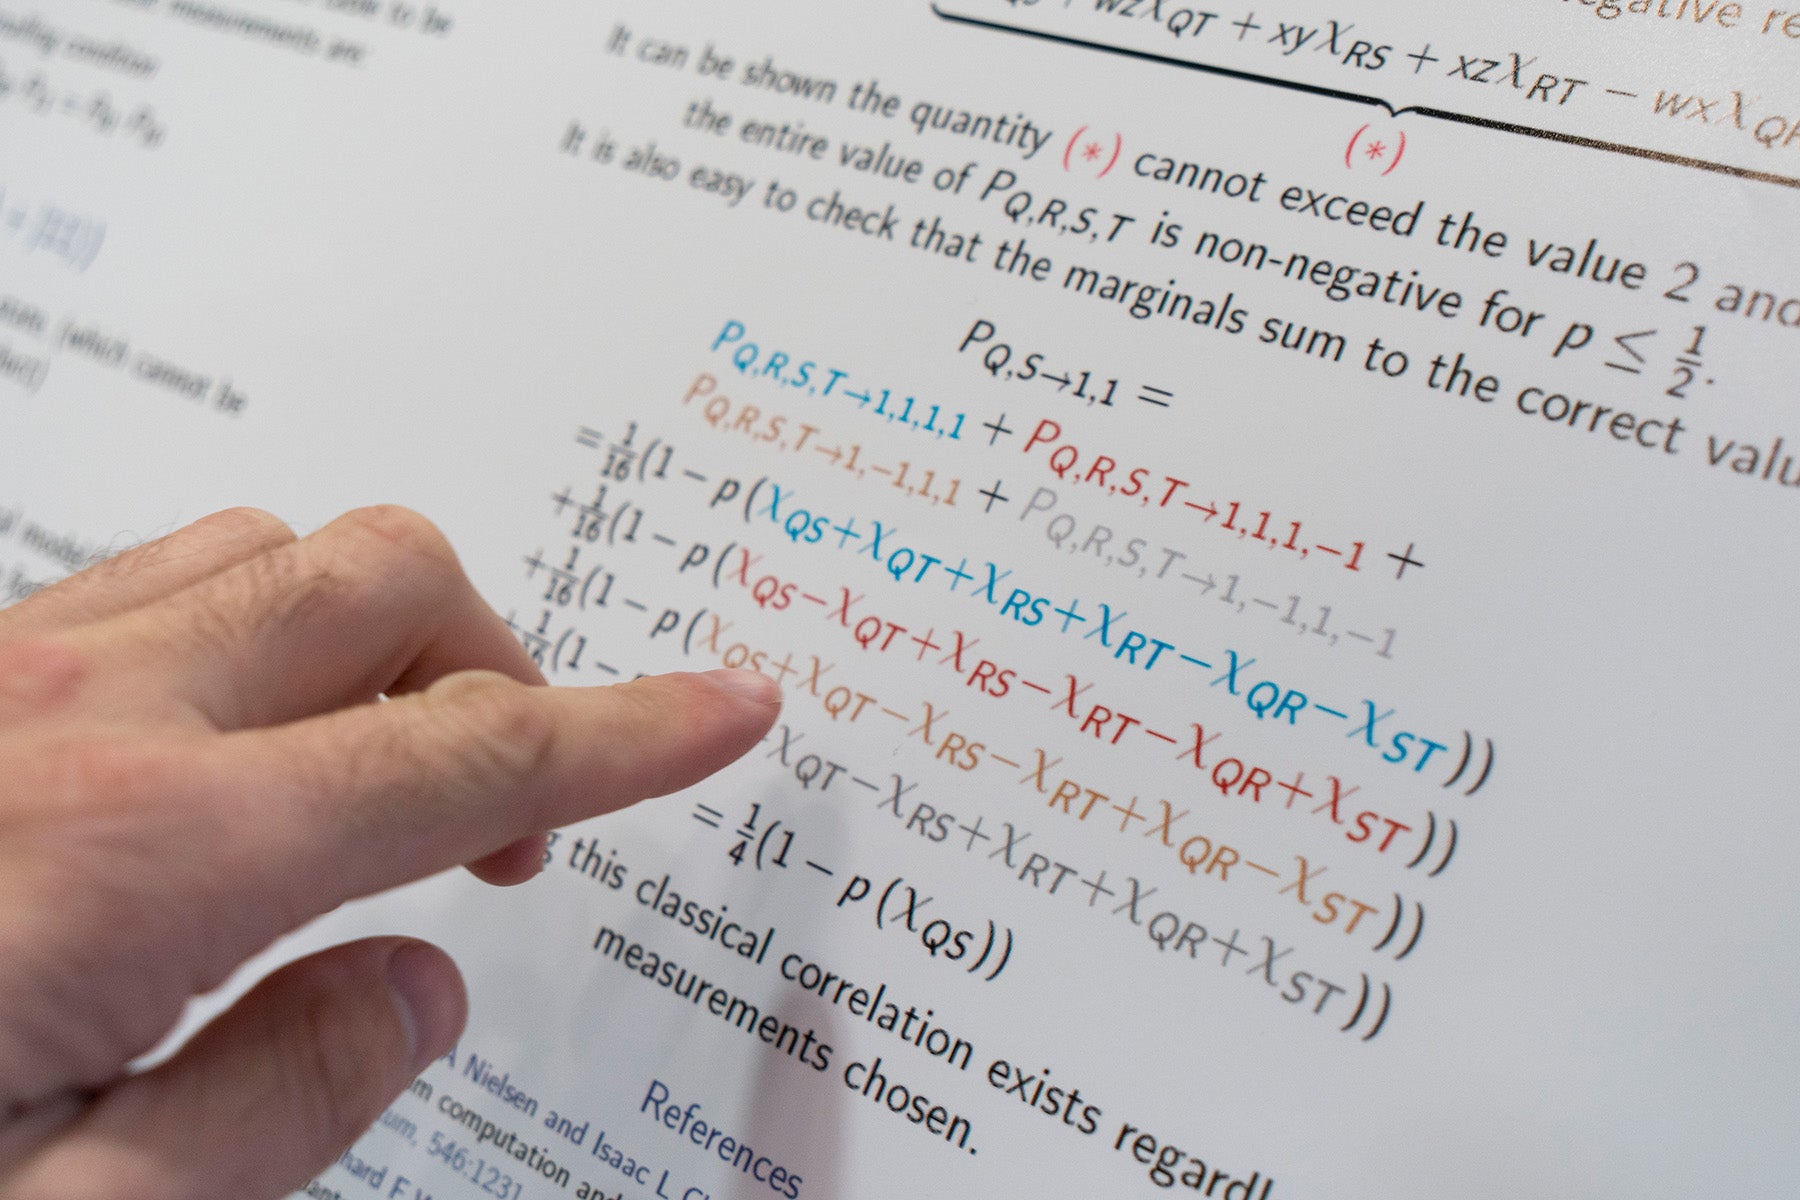 table to be
measurements are
condition
(which cannot be
negative re
+ wzχ_QT + xyχ_RS + xzχ_RT − wxχ_QR
(*)
It can be shown the quantity (*) cannot exceed the value 2 and
the entire value of P_Q,R,S,T is non-negative for p ≤ 1/2.
It is also easy to check that the marginals sum to the correct valu
P_Q,S→1,1 =
P_Q,R,S,T→1,1,1,1 + P_Q,R,S,T→1,1,1,−1 +
P_Q,R,S,T→1,−1,1,1 + P_Q,R,S,T→1,−1,1,−1
= 1/16(1 − p(χ_QS+χ_QT+χ_RS+χ_RT−χ_QR−χ_ST))
+1/16(1 − p(χ_QS−χ_QT+χ_RS−χ_RT−χ_QR+χ_ST))
+1/16(1 − p(χ_QS+χ_QT−χ_RS−χ_RT+χ_QR−χ_ST))
+1/16(1 − χ_QT−χ_RS+χ_RT+χ_QR+χ_ST))
= 1/4(1 − p(χ_QS))
g this classical correlation exists regardl
measurements chosen.
References
A Nielsen and Isaac L Ch
m computation and
um, 546:1231
hard F W